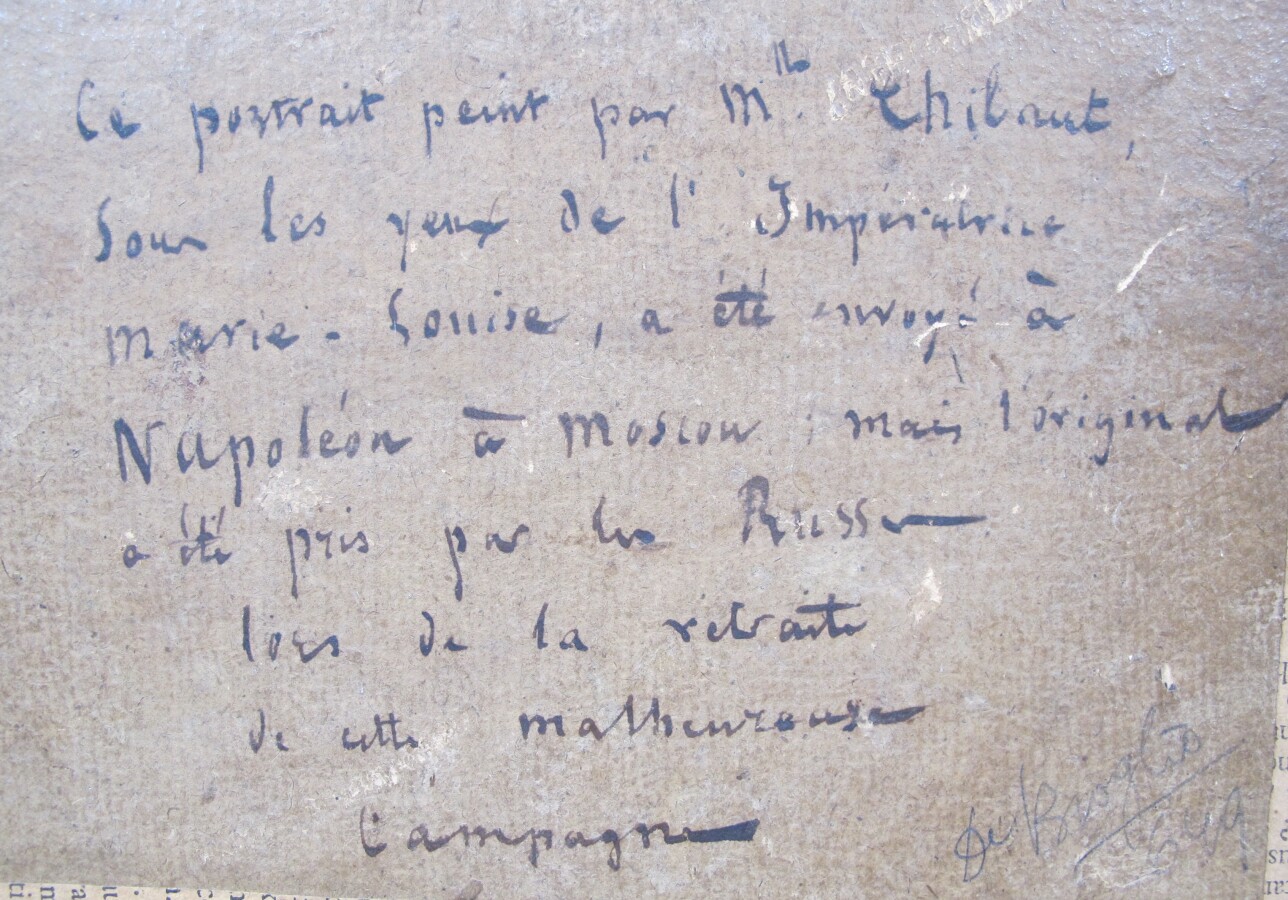 Ce portrait peint par Mlle. Thibaut,
Sous les yeux de l'Impératrice
marie-Louise, a été envoyé à
Napoléon à Moscou ; mais l'original
a été pris par les Russes
lors de la retraite
de cette malheureuse
Campagne
De Broglie